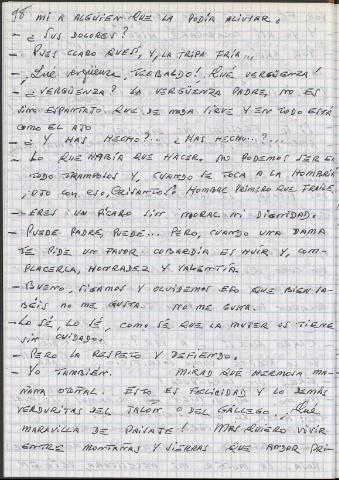 98 MI A ALGUIEN QUE LA PODÍA ALIVIAR.
- ¿SUS DOLORES?
- PUES CLARO QUESÍ, Y, LA TRIPA FRÍA...
- ¡QUÉ VERGÜENZA, TEOBALDO! ¡QUE VERGÜENZA!
- ¿VERGÜENZA? LA VERGÜENZA PADRE, NO ES
SINO ESPANTAJO QUE DE NADA SIRVE Y EN TODO ESTÁ
COMO EL AJO
- ¿Y HAS HECHO?... ¿HAS HECHO...?...
- LO QUE HABÍA QUE HACER. NO PODEMOS SER EN
TODO TRAMPOLOS Y, CUANDO SE TOCA A LA HOMBRÍA
¡OJO CON ESO, CRISANTOS! HOMBRE PRIMERO QUE FRAILE.
- ERES UN PÍCARO SIN MORAL NI DIGNIDAD.
- PUEDE PADRE, PUEDE... PERO, CUANDO UNA DAMA
TE PIDE UN FAVOR COBARDÍA ES HUIR Y, COM-
PLACERLA, HONRADEZ Y VALENTÍA.
- BUENO, SIGAMOS Y OLVIDEMOS ESO QUE BIEN SA-
BÉIS NO ME GUSTA. NO ME GUSTA.
- LO SÉ, LO SÉ, COMO SE QUE LA MUJER OS TIENE
SIN CUIDADO.
- PERO LA RESPETO Y DEFIENDO.
- YO TAMBIÉN. MIRAD QUÉ HERMOSA MA-
ÑANA OTOÑAL. ESTO ES FELICIDAD Y LO DEMÁS
VERDURITAS DEL TALON O DEL GALLEGO. ¡QUÉ
MARAVILLA DE PAISAJE! MAS QUIERO VIVIR
ENTRE MONTAÑAS Y SIERRAS QUE ANDAR PRI-